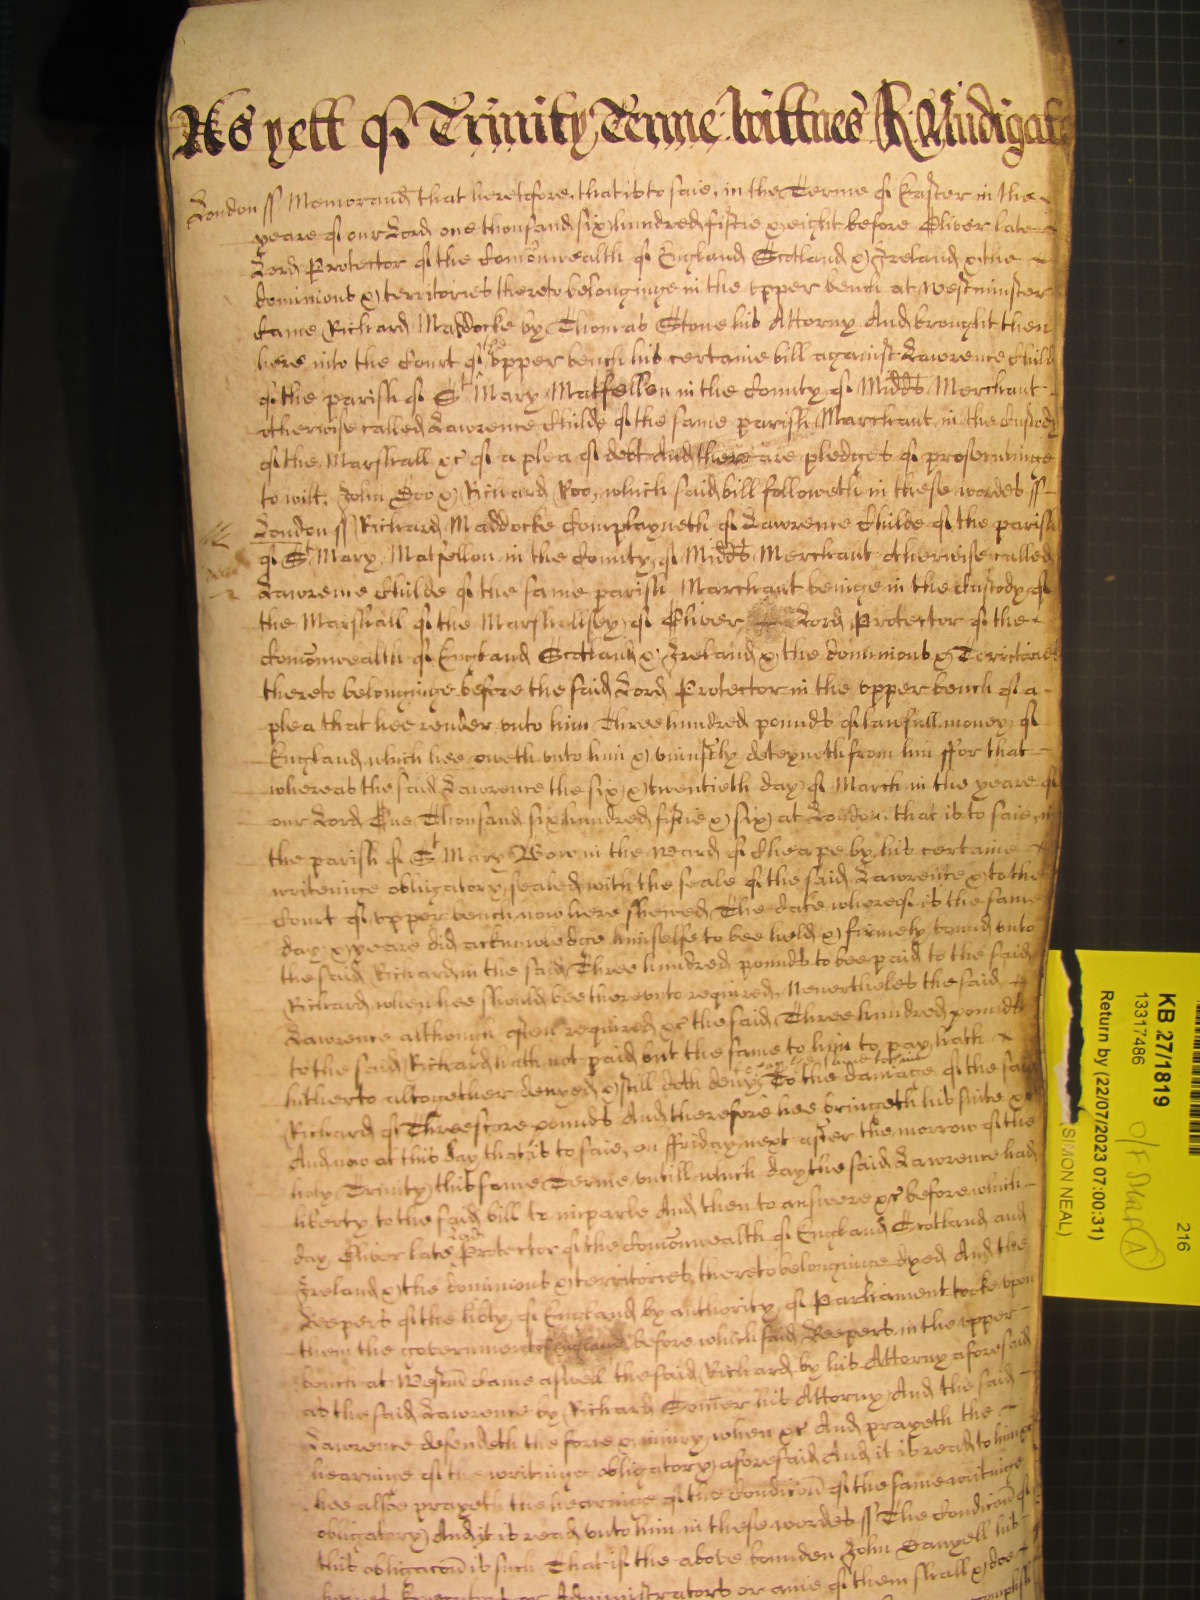 As yett of Trinity Terme Wittnes R. Nudigate
London ss Memorand that heretofore, that is to saie, in the Terme of Easter in the
yeare of our Lord one thousand six hundred fiftie & eight before Oliver late
Lord Protector of the Comonwealth of England Scotland & Ireland & the
dominions & territories thereto belonginge in the upper bench at Westminster
Came Richard Maddocke by Thomas Stone his Attorny And brought then
here into the Court of the upper bench his certaine bill against Lawrence Child
of the parish of St Mary Matfellon in the County of Midds Merchant
otherwise called Lawrence Childe of the same parish Marchant in the Custody
of the Marshall &c of a plea of debt And there are pledges of prosecutinge
to witt, John Doo & Richard Roo, which said bill followeth in these wordes ss
London ss Richard Maddocke Complayneth of Lawrence Childe of the parish
of St Mary Matfellon in the County of Midds Merchant otherwise called
Lawrence Childe of the same parish Marchant beinge in the Custody of
the Marshall of the Marshallsey of Oliver Lord Protector of the
Comonwealth of England Scotland & Ireland & the dominions & Territories
thereto belonginge before the said Lord Protector in the upper bench of a
plea that hee render unto him Three hundred pounds of lawfull money of
England, which hee oweth unto him & uniustly deteyneth from him ffor that
whereas the said Lawrence the six & twentieth day of March in the yeare of
our Lord One Thousand six hundred fiftie & six at London, that is to saie, in
the parish of St Mary Bow in the Ward of Cheape by his certaine
writeinge obligatory, sealed with the seale of the said Lawrence & to the
Court of upper bench now here shewed The date whereof is the same
day & yeare did acknowledge himselfe to bee held & firmely bound unto
the said Richard in the said Three hundred pounds to bee paid to the said
Richard, when hee should bee thereunto required, Neverthelss the said
Lawrence although often required &c the said Three hundred pounds
to the said Richard hath not paid but the same to him to pay hath
hitherto altogether denyed & still doth deny to pay the same to him To the damage of the said
Richard of Threescore pounds And therefore hee bringeth his suite &c
And now at this day, that is to saie, on ffriday next after the morrow of the
holy Trinity this same Terme untill which day the said Lawrence had
liberty to the said bill to imparle And then to answere &c before which
day Oliver late Lord Protector of the Comonwealth of England Scotland and
Ireland & the dominions & territories thereto belonginge dyed And the
Keepers of the libty of England by authority of Parliament tooke upon
them the government of England before which said Keepers in the upper
bench at Westm Came aswell the said Richard by his Attorny aforesaid
as the said Lawrence by Richard his Attorny And the said
Lawrence defendeth the force & iniury when &c And prayeth the
hearinge of the writinge obligatory aforesaid And it is read to him &c
hee alsoe prayeth the hearinge of the Condicon of the same writinge
obligatory And it is read unto him in these wordes ss The Condicon of
this obligacon is such That if the above bounden John Danyell his
heires Executors or Administrators or anie of them shall & doe
KB 27/1819
13317486
O/F Shelf A
Return by (22/07/2023 07:00:31)
SIMON NEAL)
216